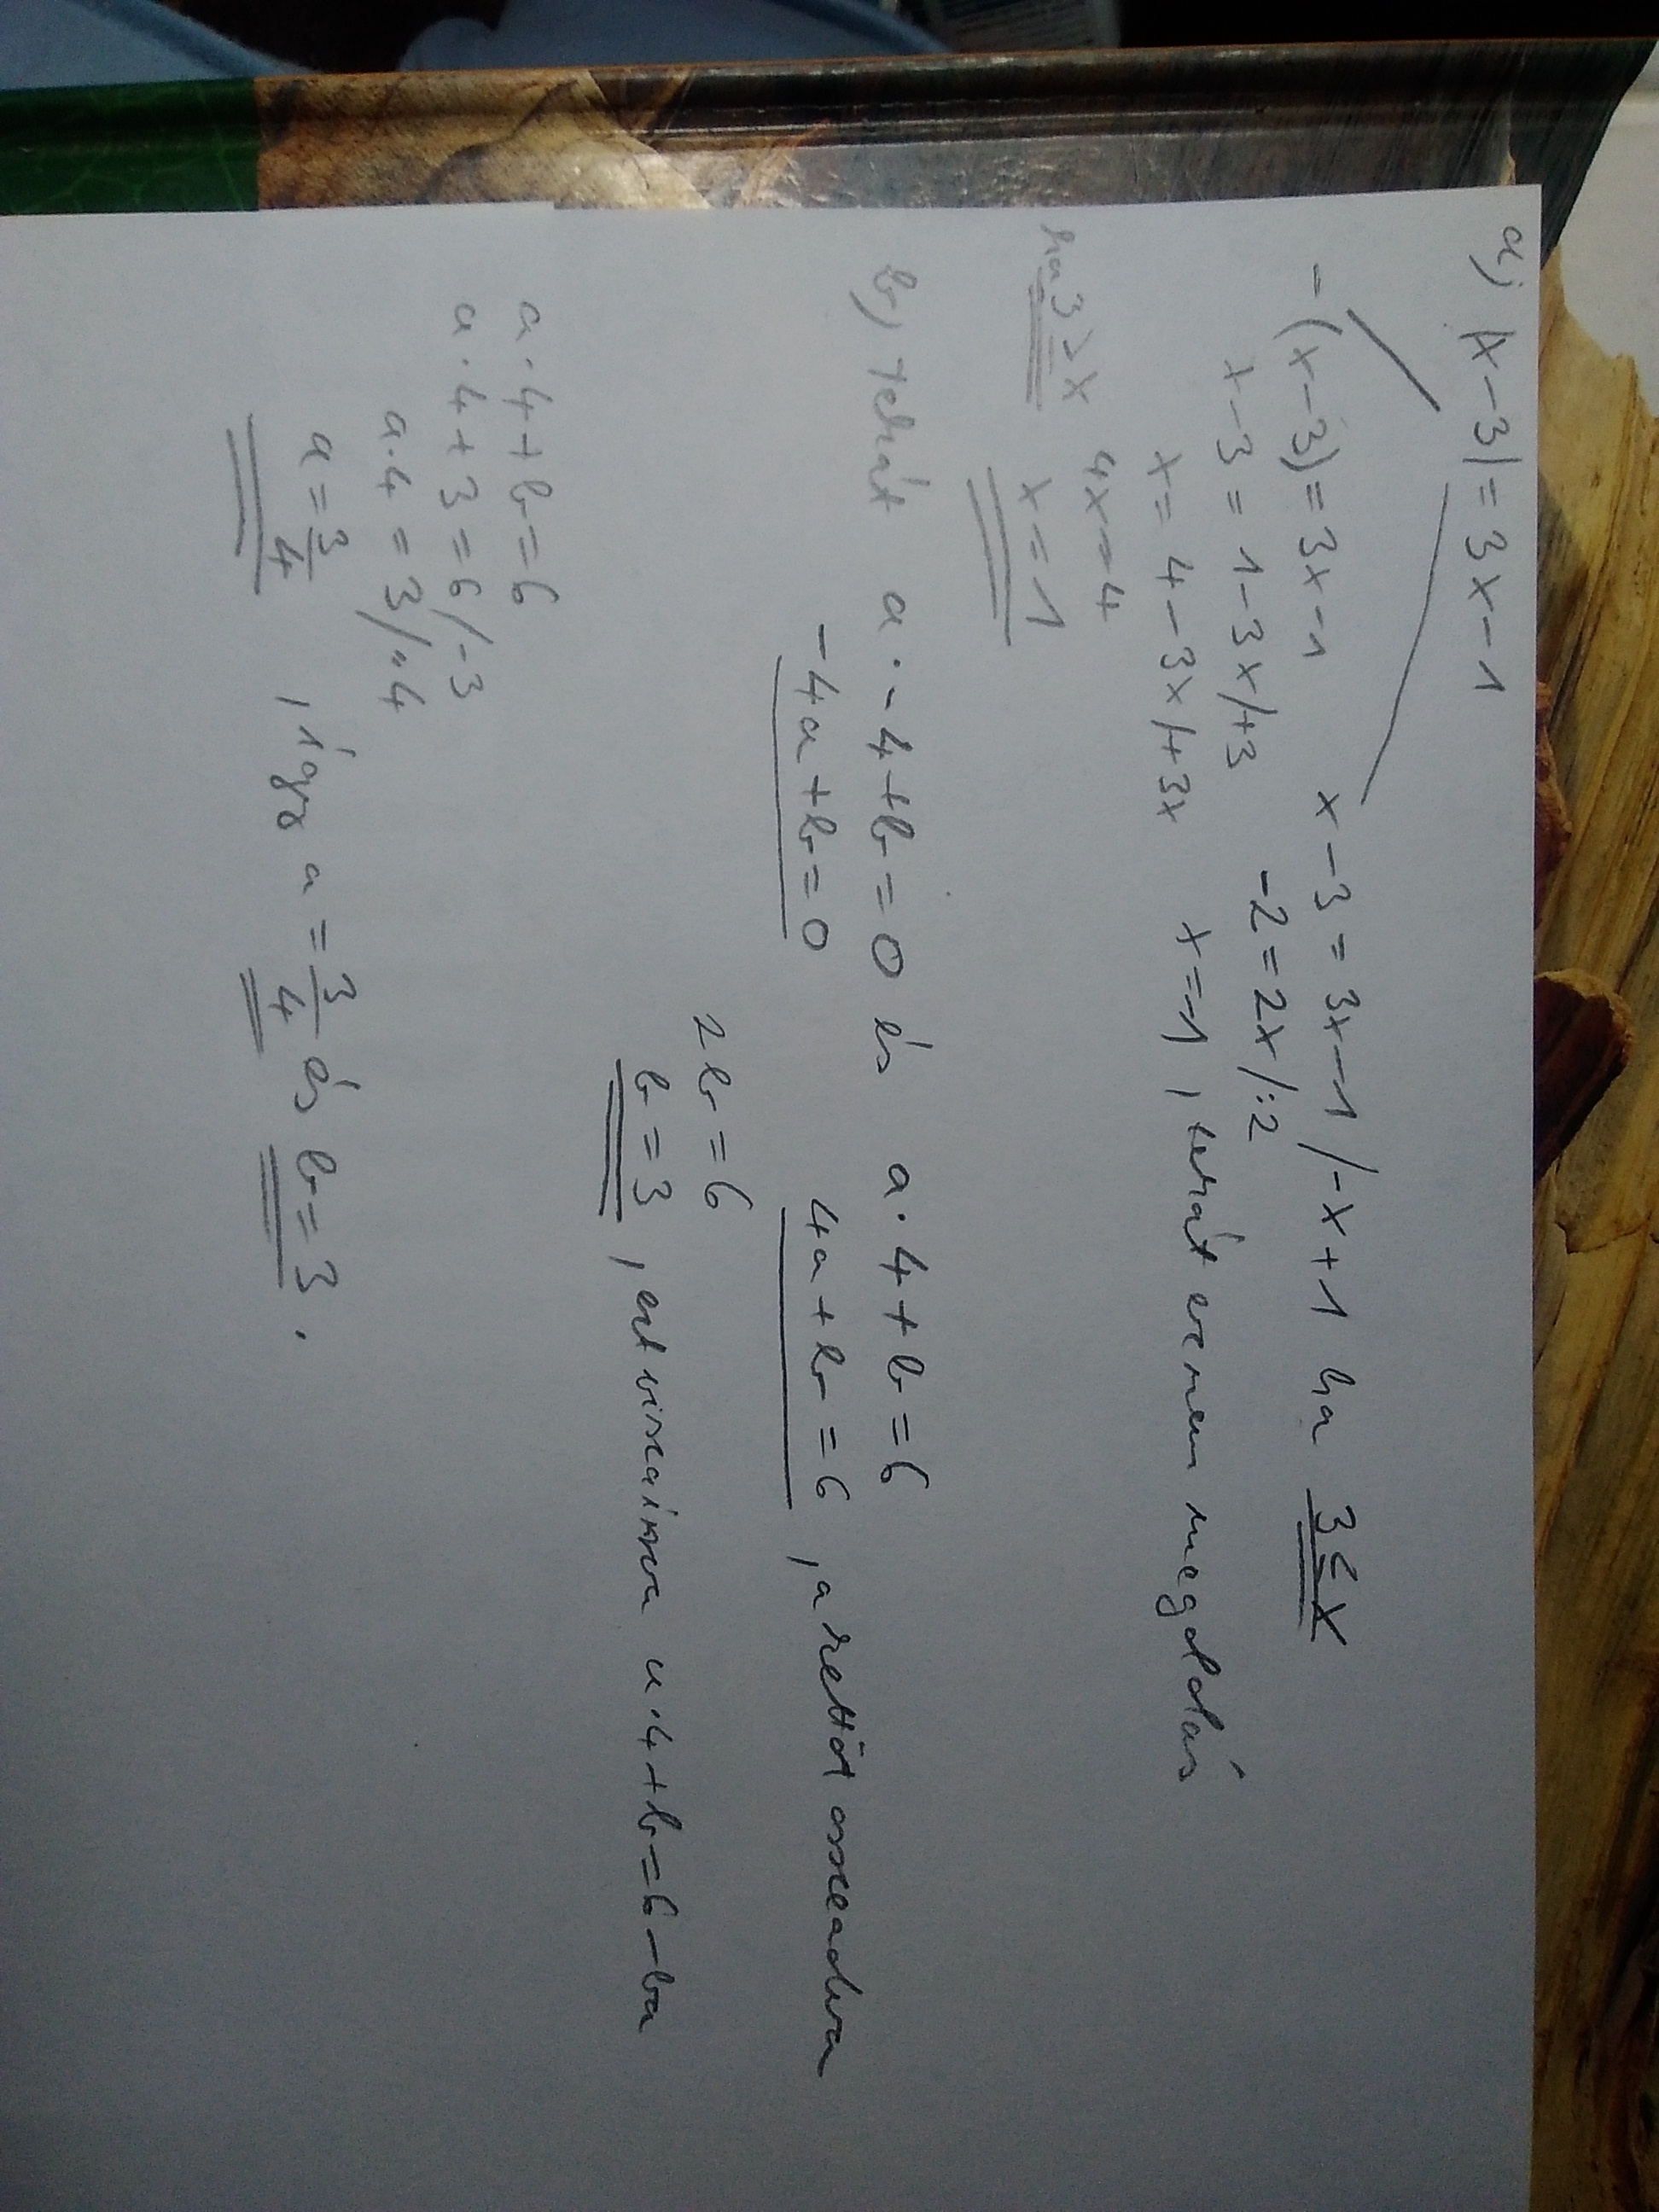 a) |x-3| = 3x-1
-(x-3) = 3x-1
x-3 = 1-3x /+3
x = 4-3x /+3x
4x=4
ha 3≥x x=1
x-3 = 3x-1 /-x+1 ha 3≤x
-2 = 2x /:2
x=-1, tehát ez nem megoldás
b) tehát a·-4+b=0 és a·4+b=6
-4a+b=0 4a+b=6, a kettőt összeadva
2b=6
b=3, ezt visszaírva a·4+b=6-ba
a·4+b=6
a·4+3=6 /-3
a·4=3 /:4
a=3/4, így a=3/4 és b=3.